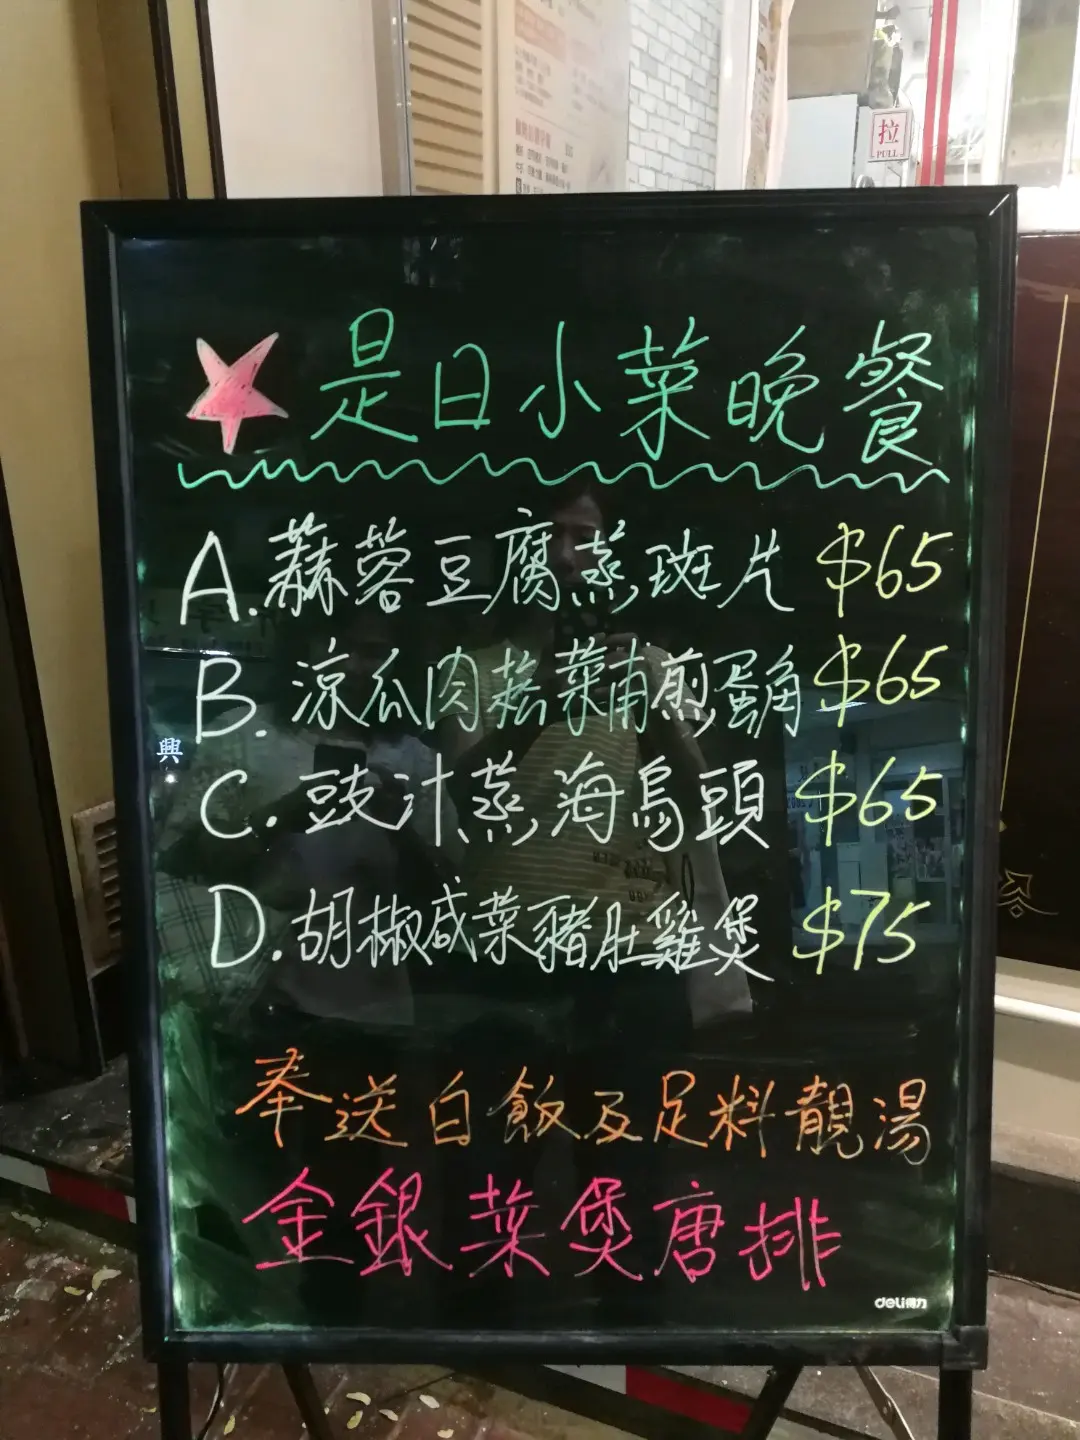 拉
PULL
是日小菜晚餐
A.蒜蓉豆腐蒸斑片 $65
B.涼瓜肉菘菜甫煎蛋角 $65
興
C.豉汁蒸海烏頭 $65
D.胡椒咸菜豬肚雞煲 $75
奉送白飯及足料靚湯
金銀菜煲唐排
deli得力